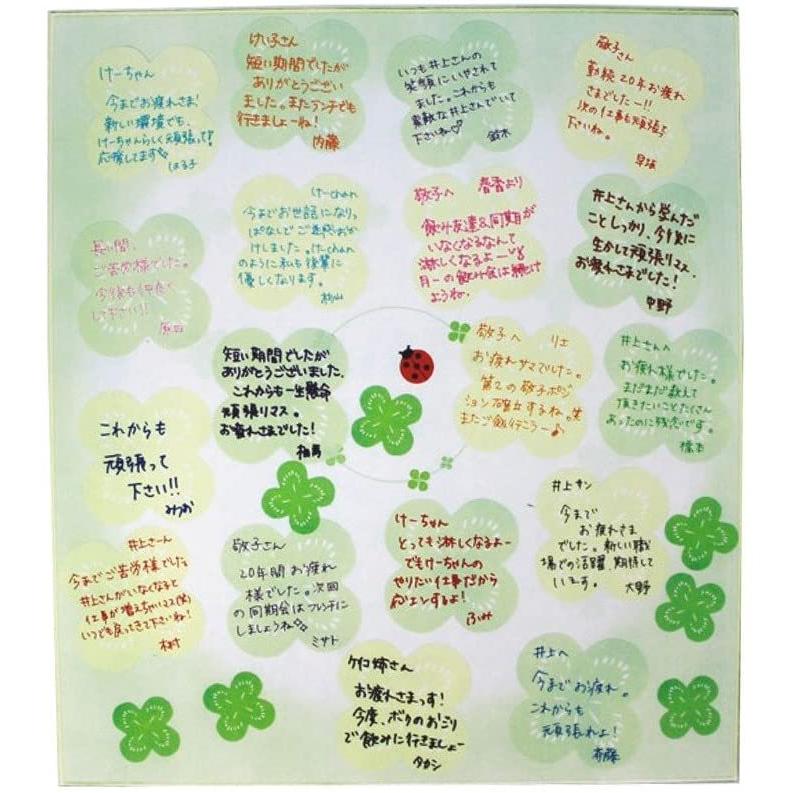 けーちゃん
今までお疲れさま!
新しい環境でも、
けーちゃんらしく頑張って!
応援してます
はる子
けい子さん
短い期間でしたが
ありがとうござい
ました。またランチでも
行きましょーね!
内藤
いつも井上さんの
笑顔にいやされて
ました。これからも
素敵な井上さんでいて
下さいね♡
鈴木
敬子さん
勤続20年お疲れ
さまでしたー!!
次の仕事も頑張って
下さいね。
早坂
長い間、
ご苦労様でした。
今後も仲良く
して下さい!!
けーchan
今までお世話になりっ
ぱなしでご迷惑おか
けしました。けーchan
のように私も後輩に
優しくなります。
杉山
敬子へ 春香より
飲み友達&同期が
いなくなるなんて
淋しくなるよー
月一の飲み会は続け
ようね。
井上さんから学んだ
ことしっかり、今後に
生かして頑張リマス。
お疲れさまでした!
中野
短い期間でしたが
ありがとうございました。
これからも一生懸命
頑張リマス。
お疲れさまでした!
相馬
敬子へ リエ
お疲れサマでした。
第2の敬子ポジ
ション確立するね。笑
またご飯行こうー♪
井上さんへ
お疲れ様でした。
まだまだ教えて
頂きたいことたくさん
あったのに残念です。
橋本
これからも
頑張って
下さい!!
みつお
井上さーん
今までご苦労様でした
井上さんがいなくなると
仕事が増えちゃいマス(笑)
いつでも戻ってきて下さいね!
木村
敬子さん
20年間お疲れ
様でした。次回
の同期会はフレンチに
しましょうね
ミサト
けーちゃん
とっても淋しくなるよー
でもけーちゃんの
やりたい仕事だから
応エンするよ!
ふみ
井上サン
今まで
お疲れさま
でした。新しい職
場での活躍、期待して
います。
大野
ケイ姉さん
お疲れさまっす!
今度、ボクのおごり
で飲みに行きましょー
タカシ
井上へ
今までお疲れ。
これからも
頑張れよ!
斉藤